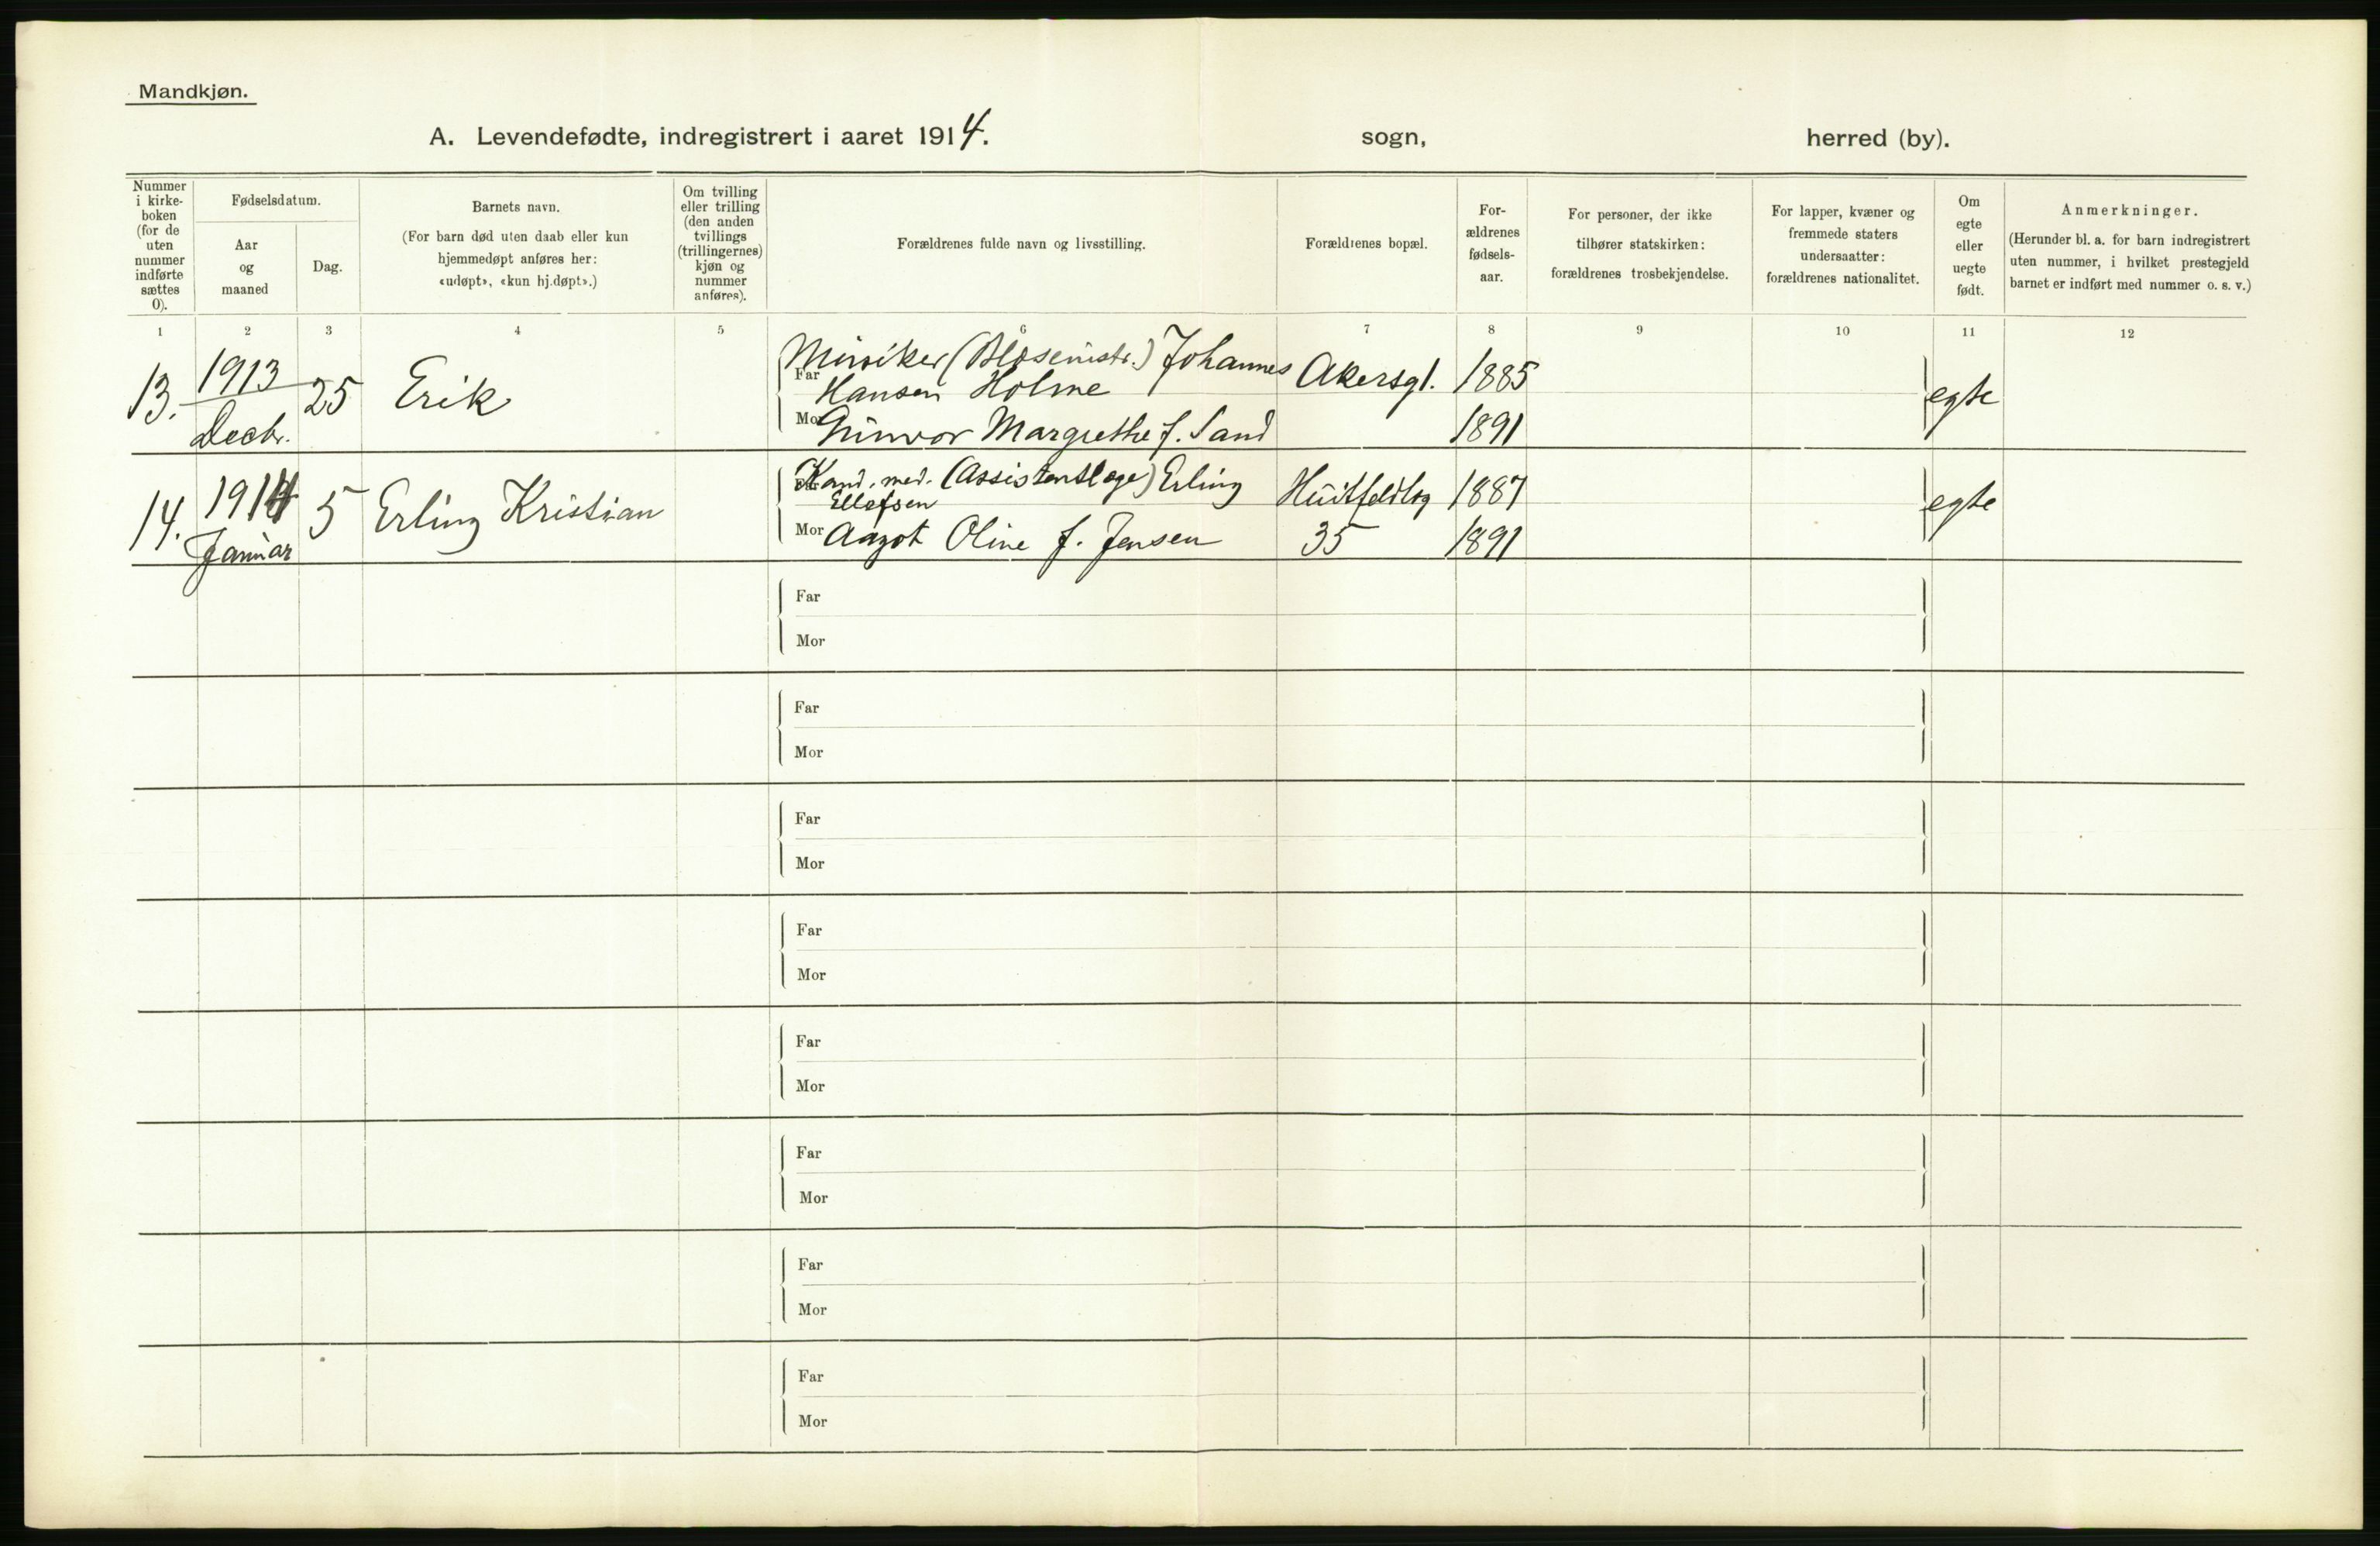 Mandkjøn.
A. Levendefødte, indregistrert i aaret 1914.
sogn,
herred (by).
Nummer
i kirke-
boken
(for de
uten
nummer
indførte
sættes
0).
Fødselsdatum.
Aar
og
maaned
Dag.
Barnets navn.
(For barn død uten daab eller kun
hjemmedøpt anføres her:
«udøpt», «kun hj.døpt».)
Om tvilling
eller trilling
(den anden
tvillings
(trillingernes)
kjøn og
nummer
anføres).
Forældrenes fulde navn og livsstilling.
Forældrenes bopæl.
For-
ældrenes
fødsels-
aar.
For personer, der ikke
tilhører statskirken:
forældrenes trosbekjendelse.
For lapper, kvæner og
fremmede staters
undersaatter:
forældrenes nationalitet.
Om
egte
eller
uegte
født.
Anmerkninger.
(Herunder bl. a. for barn indregistrert
uten nummer, i hvilket prestegjeld
barnet er indført med nummer o. s. v.)
1 2 3 4 5 6 7 8 9 10 11 12
13. 1913 Decbr. 25 Erik
Far Johannes Akersgt. 1885 egte
Hansen Holme
Mor Gunvor Margrethe f. Sand 1891
14. 1914 Januar 5 Erling Kristian
Far Kand. med. (Assistentlæge) Erling Huitfeldtsg 1887 egte
Ellefsen
Mor Aagot Oline f. Jensen 35 1891
Far
Mor
Far
Mor
Far
Mor
Far
Mor
Far
Mor
Far
Mor
Far
Mor
Far
Mor